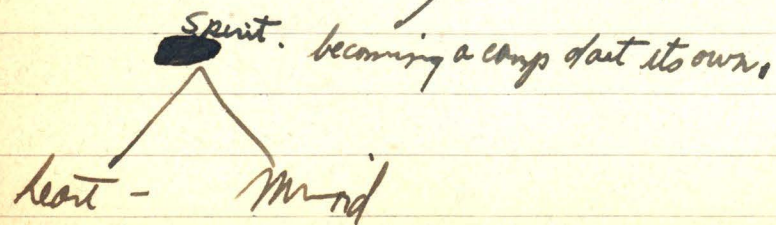 Spirit. becoming a camp of its own.
heart - Mind